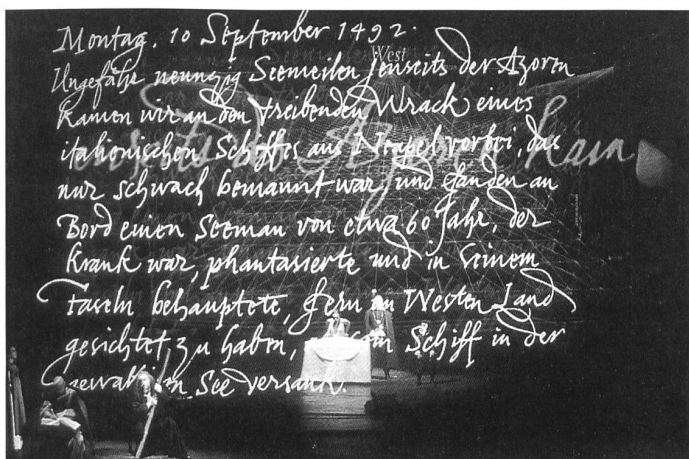 Montag, 10 September 1492.
West
Ungefähr neunzig Seemeilen jenseits der Azoren
kamen wir an den treibenden Wrack eines
italienischen Schiffes aus Neapel vorbei, das
nur schwach bemannt war und fanden an
Bord einen Seeman von etwa 60 Jahr, der
krank war, phantasierte und in seinem
Faseln behauptete, fern im Westen Land
gesichtet zu haben, Schiff in der
See versank.